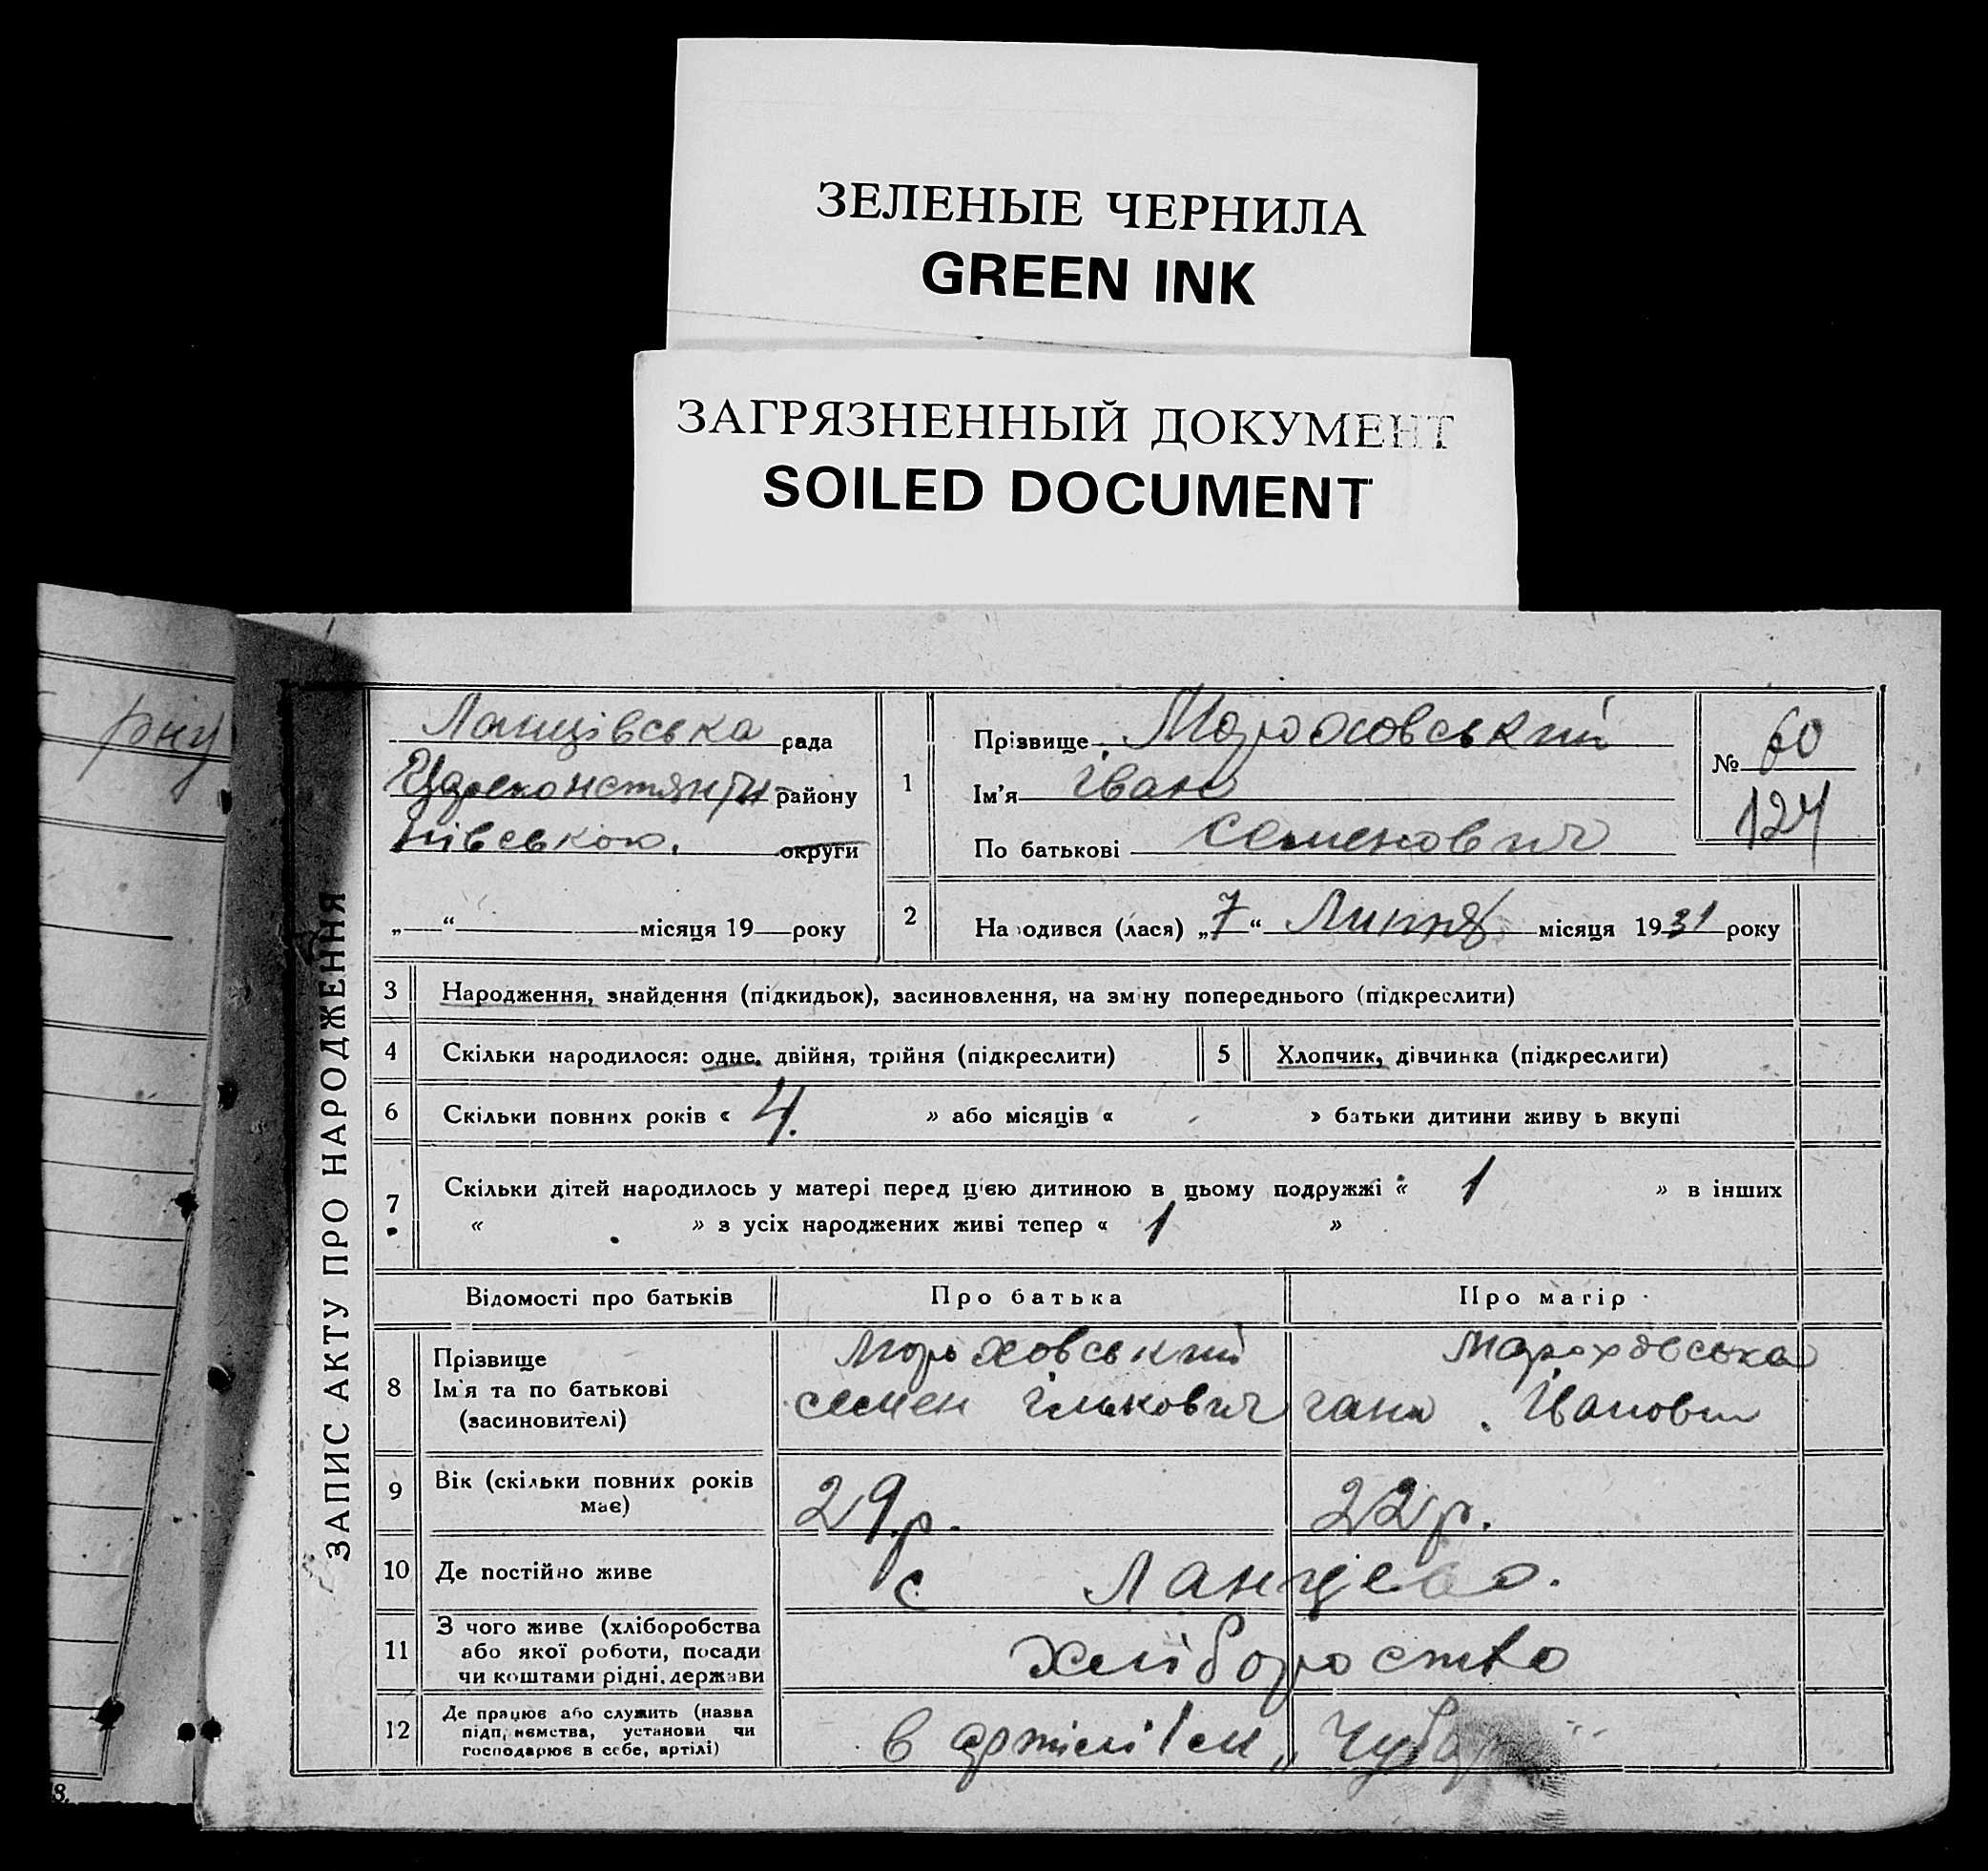 ЗЕЛЕНЫЕ ЧЕРНИЛА
GREEN INK
ЗАГРЯЗНЕННЫЙ ДОКУМЕНТ
SOILED DOCUMENT
рну
ЗАПИС АКТУ ПРО НАРОДЖЕННЯ
Ланцівська рада
Царекостянти району
нівською. округи
„ “ місяця 19 року
1
Прізвище Мороховський
Ім'я Іван
По батькові Семенович
№ 60
124
2 На одився (лася) „7“ Липня місяця 1931 року
3 Народження, знайдення (підкидьок), засиновлення, на зміну попереднього (підкреслити)
4 Скільки народилося: одне, двійня, трійня (підкреслити)
5 Хлопчик, дівчинка (підкреслити)
6 Скільки повних років « 4. » або місяців « » батьки дитини живу ь вкупі
7 Скільки дітей народилось у матері перед цією дитиною в цьому подружжі « 1 » в інших
« » з усіх народжених живі тепер « 1 »
Відомості про батьків Про батька Про матір
8 Прізвище
Ім'я та по батькові
(засиновителі)
Мороховський
семен ількович
Мороховська
гана Іванов
9 Вік (скільки повних років
має)
29 р. 22 р.
10 Де постійно живе с Ланцево.
11 З чого живе (хліборобства
або якої роботи, посади
чи коштами рідні, держави
хліборо ство
12 Де працює або служить (назва
підп, немства, установи чи
господарює в себе, артілі)
в артілі ім „ Чубар
8.